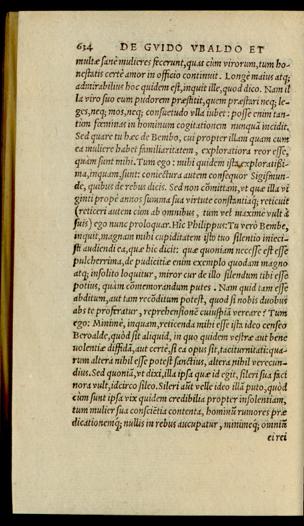 634 DE GVIDO VBALDO ET
multæ sanè mulieres fecerunt, quat cùm virorum, tum ho-
nestatis certè amor in officio continuit. Longè maius atq;
admirabilius hoc quidem est, inquit ille, quod dico. Nam il
la viro suo eum pudorem præstitit, quem præstari neq; le-
ges, neq; mos, neq; consuetudo vlla iubet: posse enim tan-
tum fœminas in hominum cogitationem nunquã incidit.
Sed quare tu hæc de Bembo, cui propter illam quam cum
ea muliere habet familiaritatem, exploratiora reor esse,
quàm sunt mihi. Tum ego: mihi quidem ista exploratissi-
ma, inquam, sunt: coniectura autem consequor Sigismun-
de, quibus de rebus dicis. Sed non cõmittam, vt quæ illa vi
ginti propè annos summa sua virtute constantiaq; reticuit
(reticeri autem cùm ab omnibus, tum vel maximè vult à
suis) ego nunc proloquar. Hîc Philippus: Tu verò Bembe,
inquit, magnam mihi cupiditatem isto tuo silentio inieci-
sti audiendi ea, quæ hic dicit: quæ quoniam necesse est esse
pulcherrima, de pudicitiæ enim exemplo quodam magno
atq; insolito loquitur, miror cur de illo silendum tibi esse
potius, quàm cõmemorandum putes. Nam quid tam esse
abditum, aut tam recõditum potest, quod si nobis duobus
abs te proferatur, reprehensionẽ cuiuspiã vereare? Tum
ego: Minimè, inquam, reticenda mihi esse ista ideo censeo
Beroalde, quòd sit aliquid, in quo quidem vestræ aut bene
uolentiæ diffidã, aut certè, si ea opus sit, taciturnitati: quã-
rum altera nihil esse potest sanctius, altera nihil verecun-
dius. Sed quoniã, vt dixi, illa ipsa quæ id egit, sileri sua faci
nora vult, idcirco sileo. Sileri aũt velle ideo illã puto, quòd
cùm sunt ipsa vix quidem credibilia propter insolentiam,
tum mulier sua consciẽtia contenta, hominũ rumores præ
dicationemq; nullis in rebus aucupatur, minimeq; omniũ
ei rei